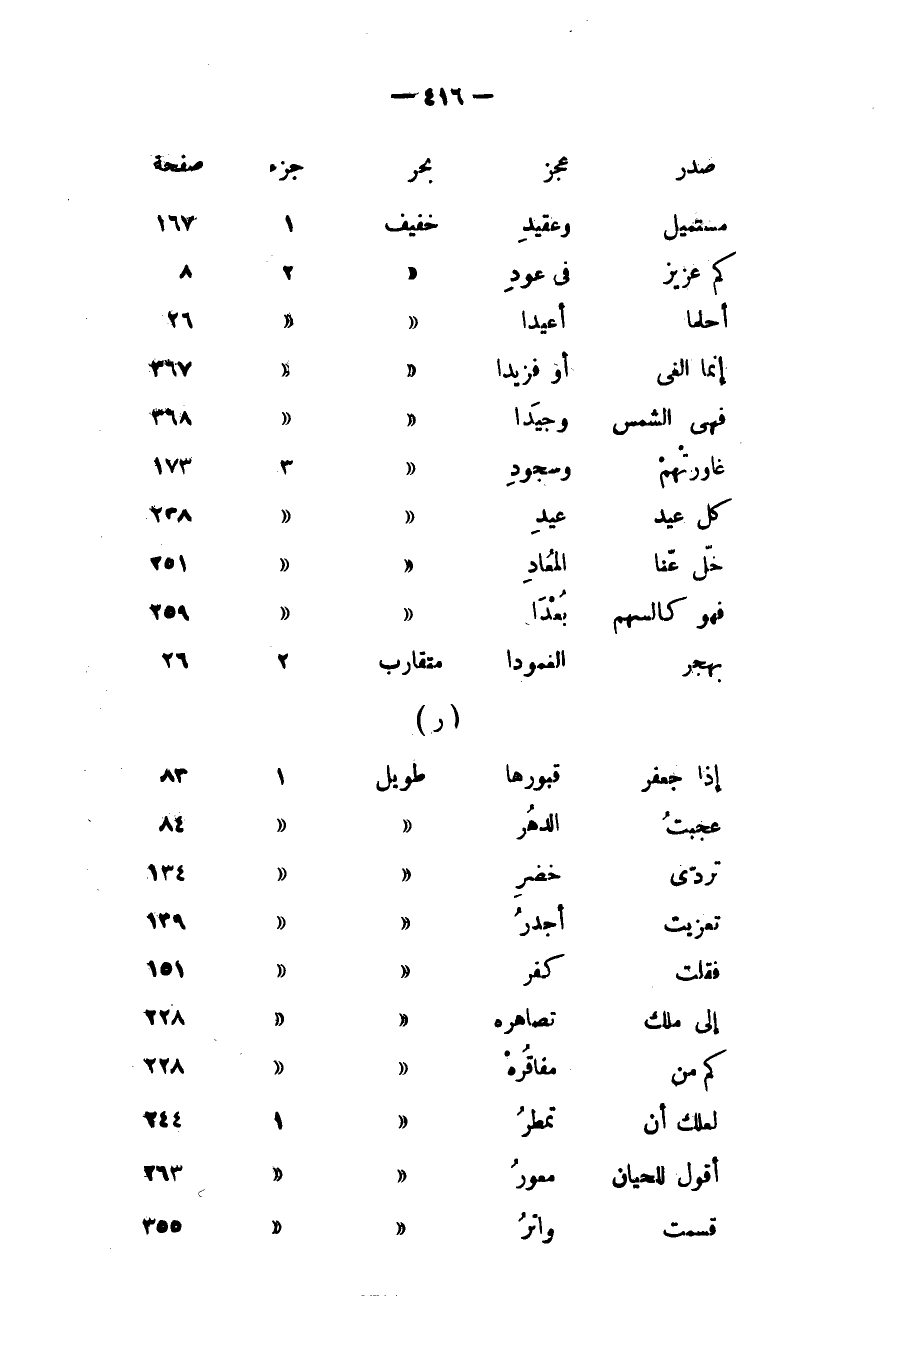 — ٤١٦ —
صدر عجز بحر جزء صفحة
مستميل وعقيدِ خفيف ١ ١٦٧
كم عزيز فى عودِ » ٢ ٨
أحلما أعيدا » » ٢٦
إنما الفى أو فزيدا » » ٣٦٧
فهى الشمس وجيَدا » » ٣٦٨
غاورتْهمْ وسجودِ » ٣ ١٧٣
كل عيد عيدِ » » ٢٣٨
خّل عّنا المُعادِ » » ٢٥١
فهو كالسهم بُعْدَا » » ٢٥٩
بهجر الغمودا متقارب ٢ ٢٦
(ر)
إذا جعفر قبورها طويل ١ ٨٣
عجبتُ الدهُر » » ٨٤
تردّى خضرِ » » ١٣٤
تعزيت أجدرُ » » ١٣٩
فقلت كفر » » ١٥١
إلى ملك تصاهره » » ٢٢٨
كم من مفاقُرهْ » » ٢٢٨
لعلك أن تمطرُ » ١ ٢٤٤
أقول للحيان معورُ » » ٢٦٣
قسمت واترُ » » ٣٥٥